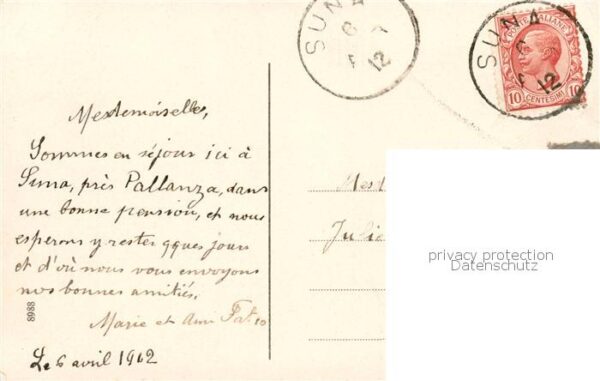 SUNA
6
12
SUNA
6
12
POSTE ITALIANE
10 CENTESIMI 10
Mesdemoiselles,
Sommes en séjour ici à
Suna, près Pallanza, dans
une bonne pension, et nous
esperons y rester qques jours
et d'où nous vous envoyons
nos bonnes amitiés.
Marie et
Le 6 avril 1912
8988
Mes
Julie
privacy protection
Datenschutz